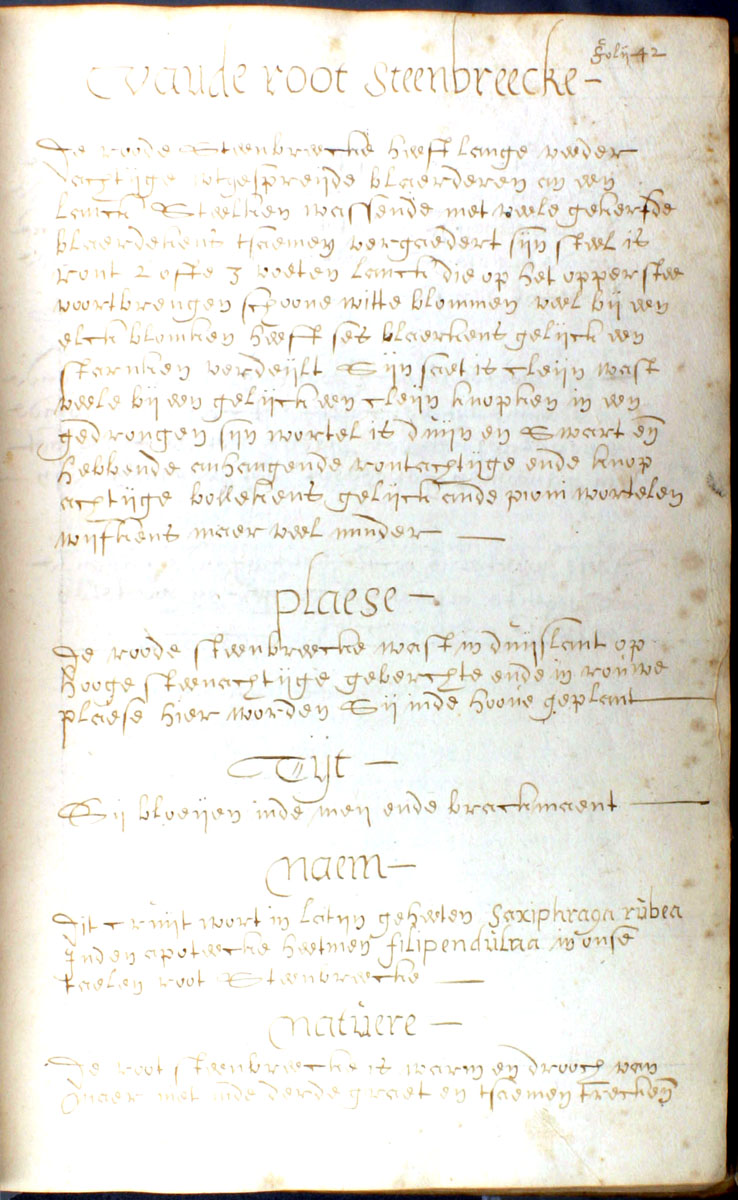 folij 42
Vande root Steenbreecke -
De roode Steenbreecke heeft lange veeder
achtijge wtgespreijde blaerderen an een
lanck Steelken wassende met veele gekerfde
blaerdekens tsaemen vergaedert sijn steel is
ront 2 ofte 3 voeten lanck die op het opperstee
voortbrengen schoone witte blommen veel bij een
elck blomken heeft ses blaerkens gelijck een
starnken verdeijlt Sijn saet is cleijn wast
veele bij een gelijck een cleijn knopken in een
gedrongen sijn wortel is dmijn en Swart en
hebbende anhangende rontachtijge ende knop
achtijge bollekens gelijck ande pioni wortelen
wijfkens maer veel minder —
plaese -
De roode steenbreecke wast in duijslant op
Hooge steenachtijge geberchte ende in rouwe
plaese hier worden Sij inde hoove geplant —
Tijt -
Sij bloeijen inde meij ende brackmaent —
Naem -
Dit cruijt wort in latijn geheeten Saxiphraga rubea
Inden apoteecke heetmen filipendulaa in onse
taelen root Steenbreecke —
Natuere -
De root steenbreecke is warm en drooch van
maer met inde derde graet en tsaemen trecken